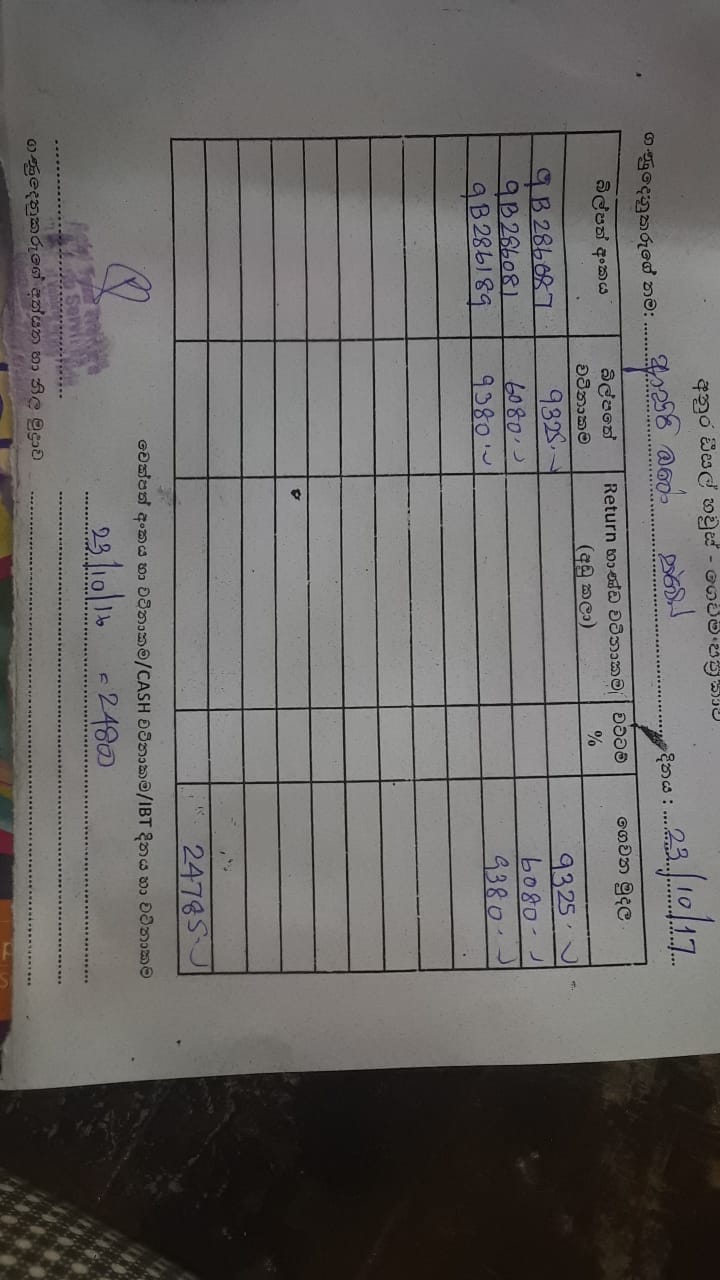 අනුර ඩීසල් හවුස් - ගෙවීම් පත්‍රිකාව
ගණුදෙනුකරුගේ නම: දිනය : 23/10/17
බිල්පත් අංකය බිල්පතේ වටිනාකම Return භාණ්ඩ වටිනාකම (අඩු කලා) වට්ටම් % ගෙවන මුදල
9B286087 9325 9325
9B286081 6080 6080
9B286189 9380 9380
24785
චෙක්පත් අංකය හා වටිනාකම/CASH වටිනාකම/IBT දිනය හා වටිනාකම
23/10/ = 2480
ගණුදෙනුකරුගේ අත්සන හා නිල මුද්‍රාව